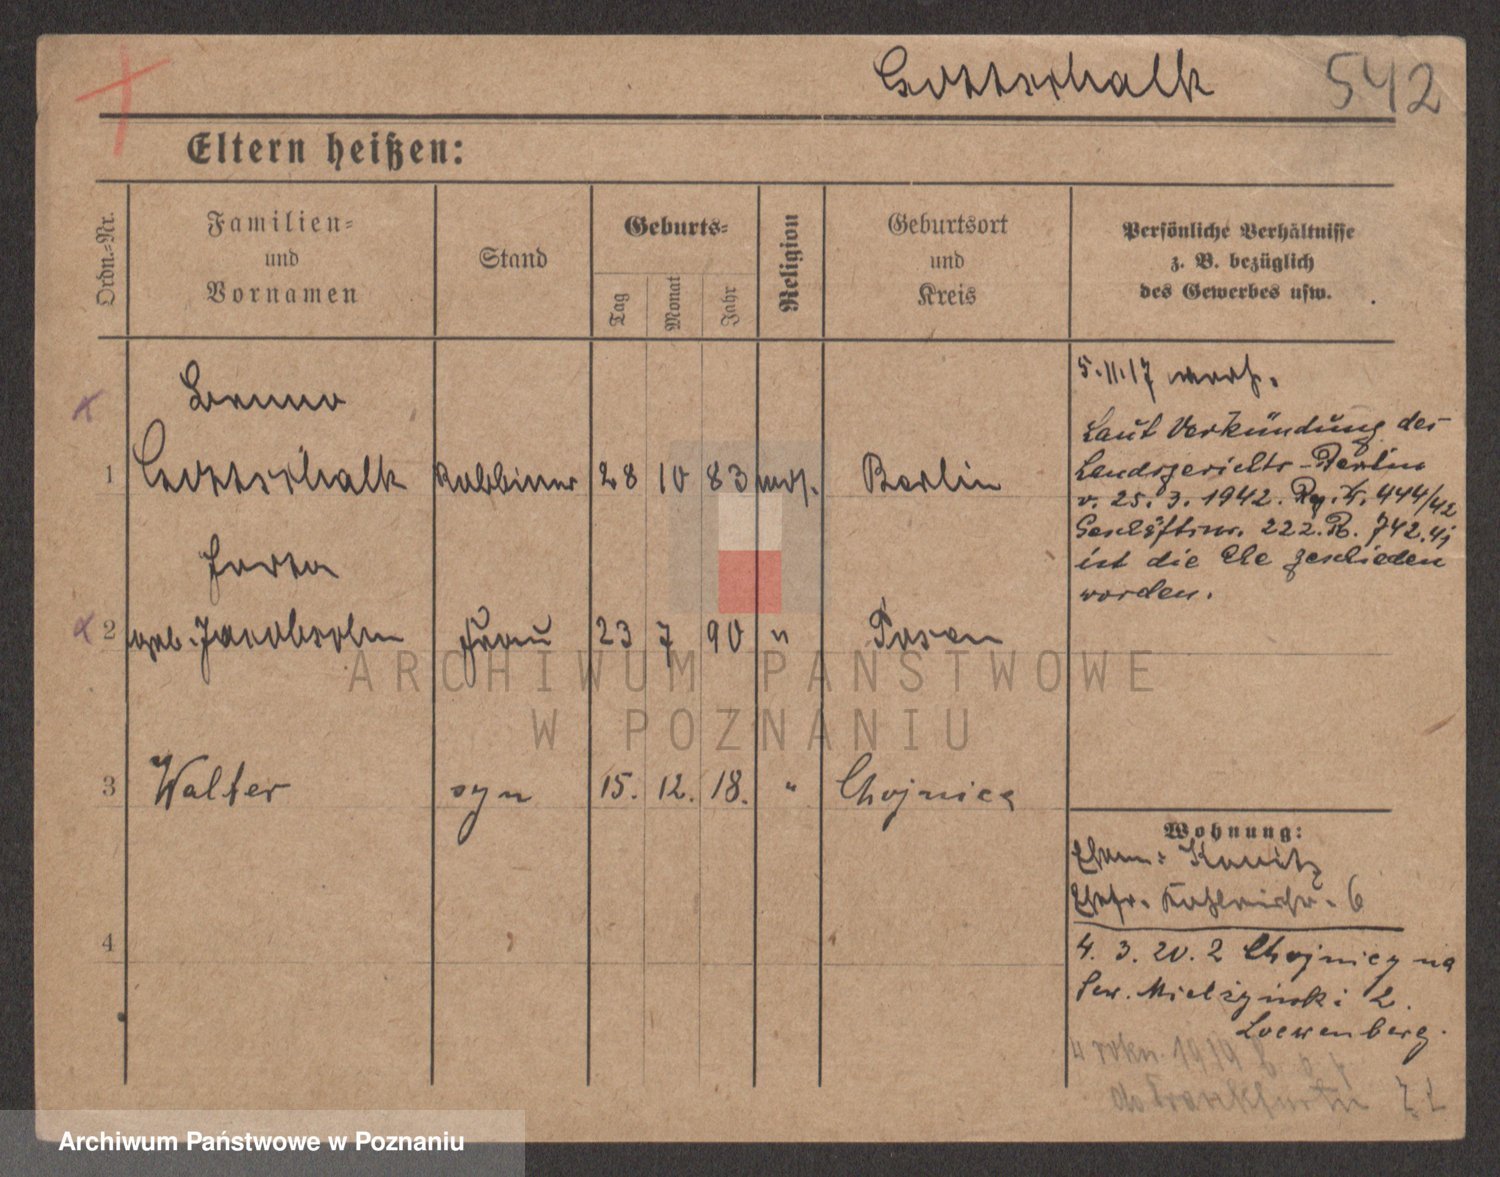 Gottschalk 542
Eltern heißen:
Ordn.-Nr.
Familien-
und
Vornamen
Stand
Geburts-
Tag
Monat
Jahr
Religion
Geburtsort
und
Kreis
Persönliche Verhältnisse
z. B. bezüglich
des Gewerbes usw.
Benno
1 Gottschalk Rabbiner 28 10 83 mos. Berlin
Herta
2 geb. Jacobsohn Frau 23 7 90 " Posen
3 Walter syn 15. 12. 18. " Chojnice
4
5.11.17
Laut Verkündung des
Landgerichts-Berlin
v. 25. 3. 1942. 444/42
Geschäftsnr. 222. R. 742.41
ist die Ehe geschieden
worden.
Wohnung:
Ehem: Konitz
Ehefr. 6
4. 3. 20. z Chojnicy na
Sew. Mielżyński 2.
Loewenberg.
w roku 1919
do Frankfurtu
ARCHIWUM PAŃSTWOWE
W POZNANIU
Archiwum Państwowe w Poznaniu